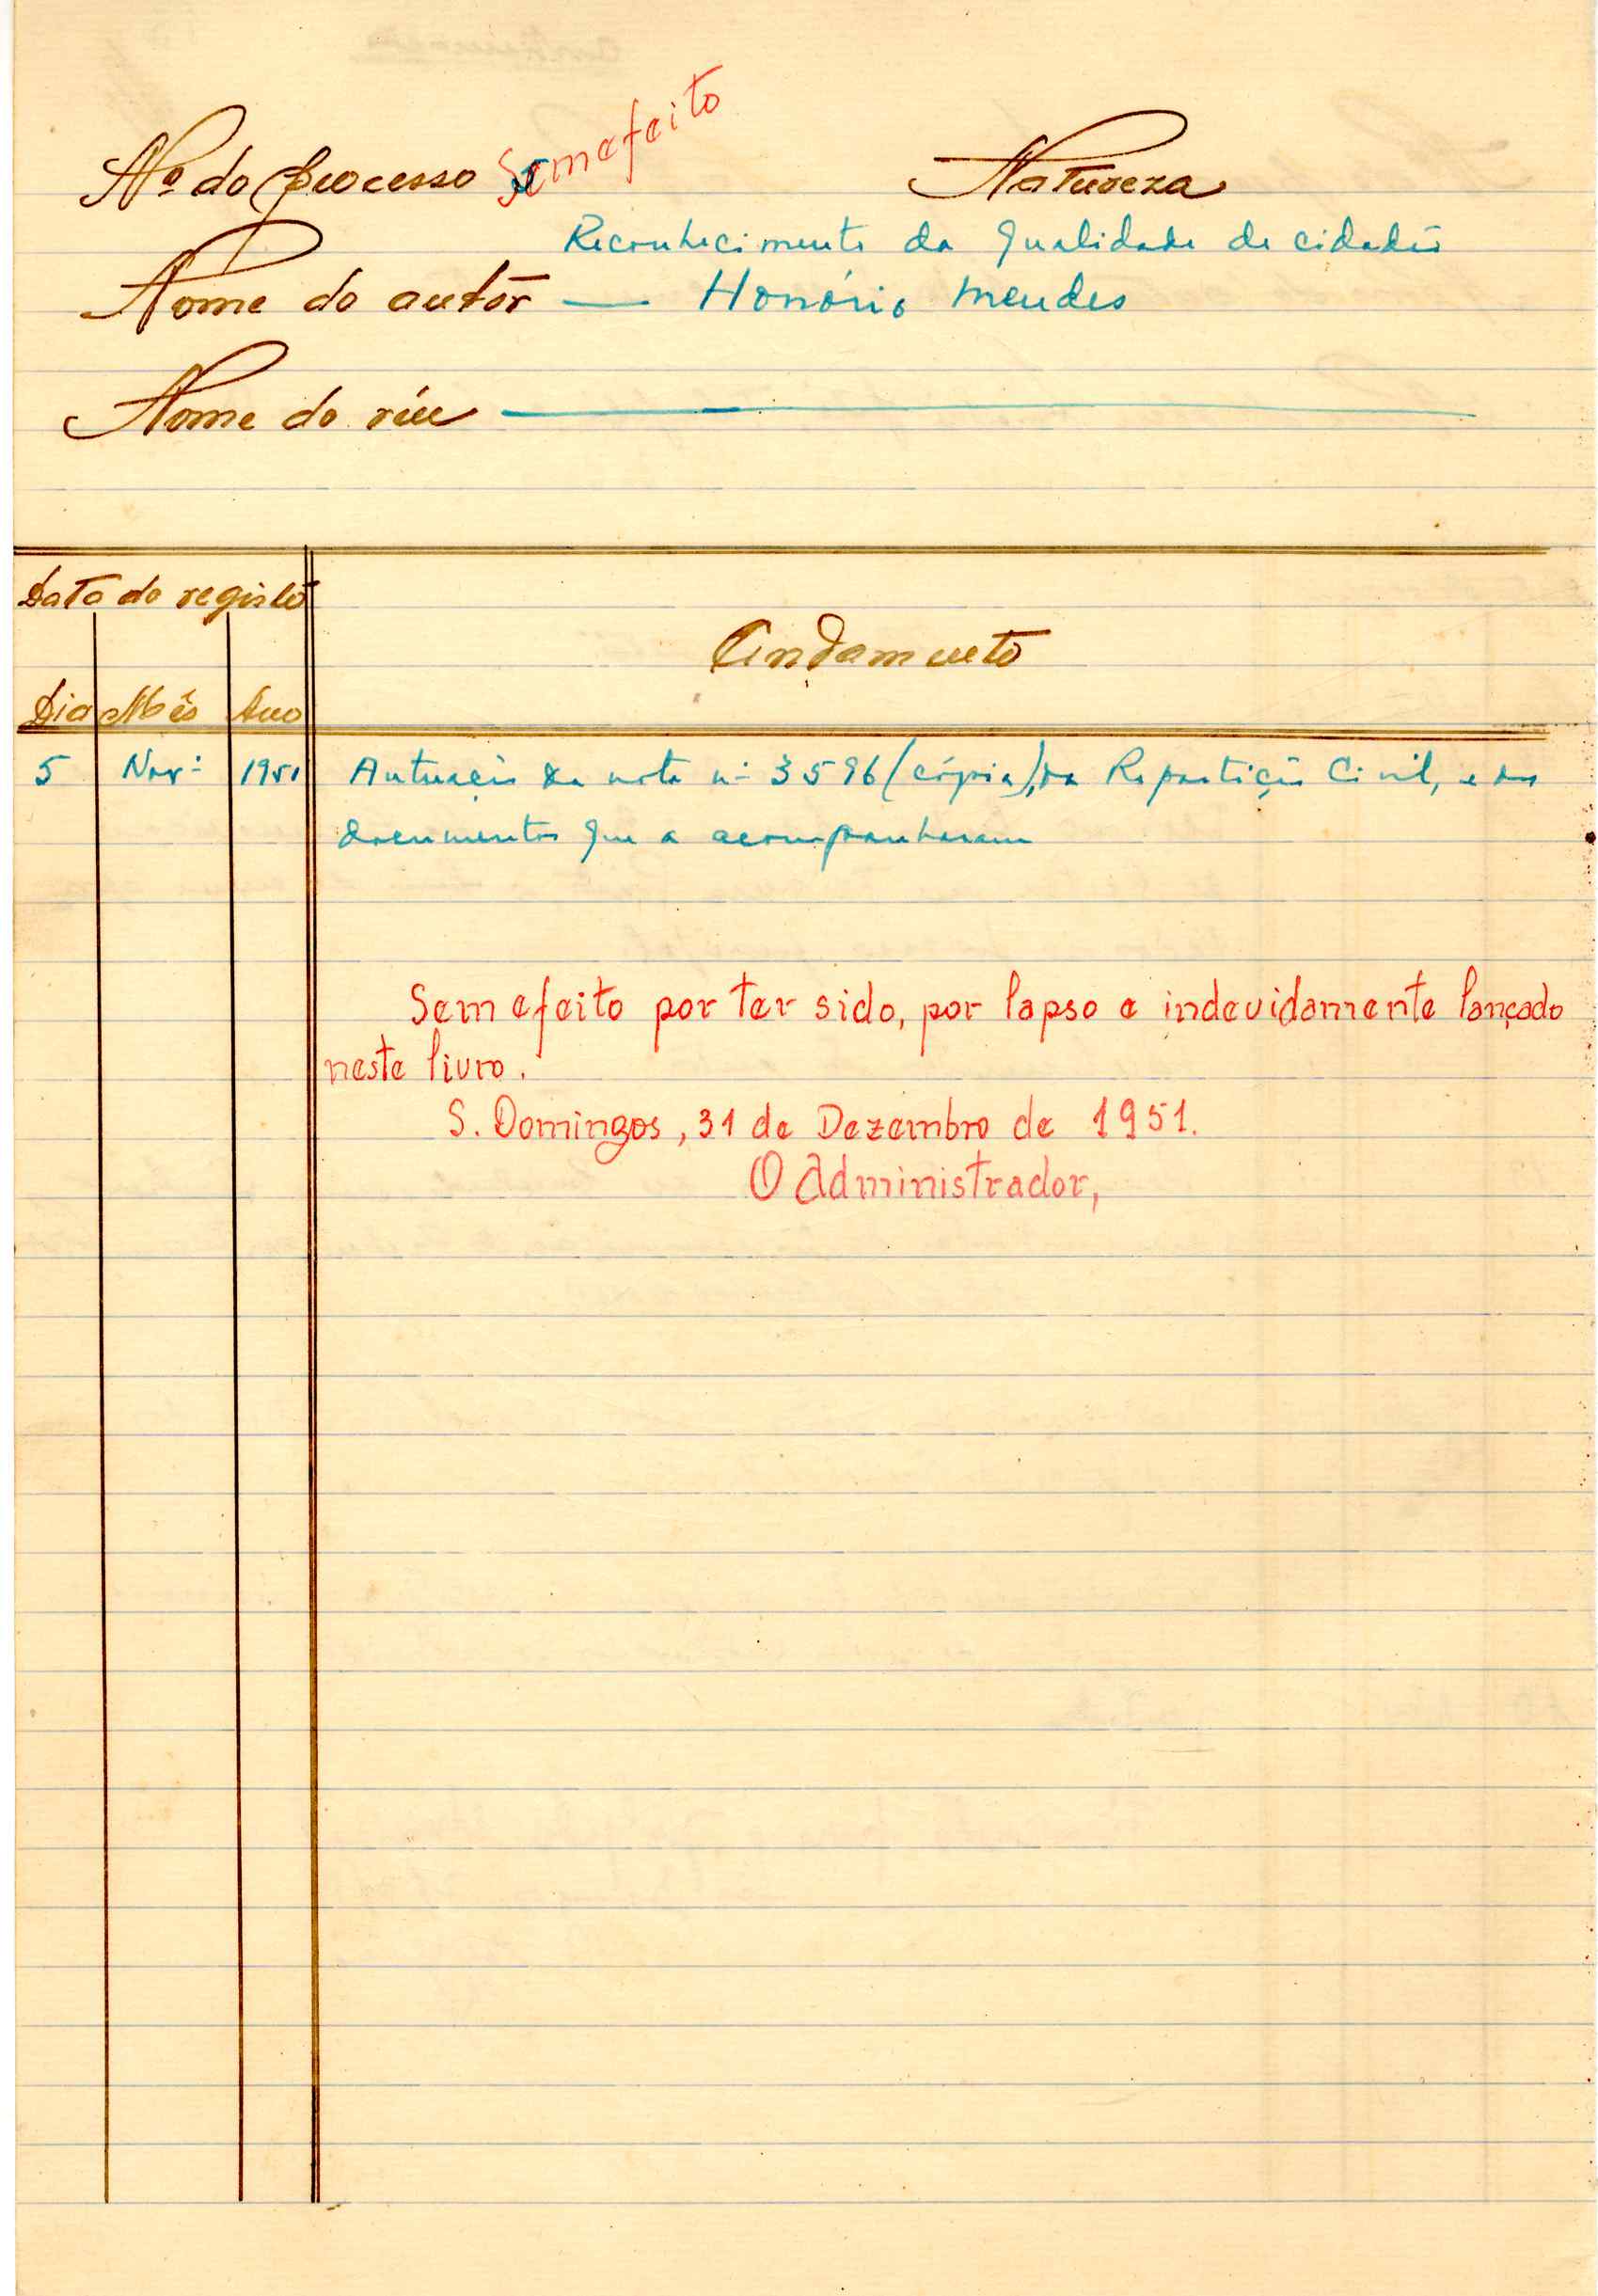 Nº do processo Sem efeito Natureza
Reconhecimento da qualidade de cidadão
Nome do autôr — Honório Mendes
Nome do réu
Data do registo
Andamento
Dia Mês Ano
5 Novº 1951 Autuação da nota nº 3596 (cópia), da Repartição Civil, e dos
documentos que a acompanharam
Sem efeito por ter sido, por lapso e indevidamente lançado
neste livro.
S. Domingos, 31 de Dezembro de 1951.
O Administrador,